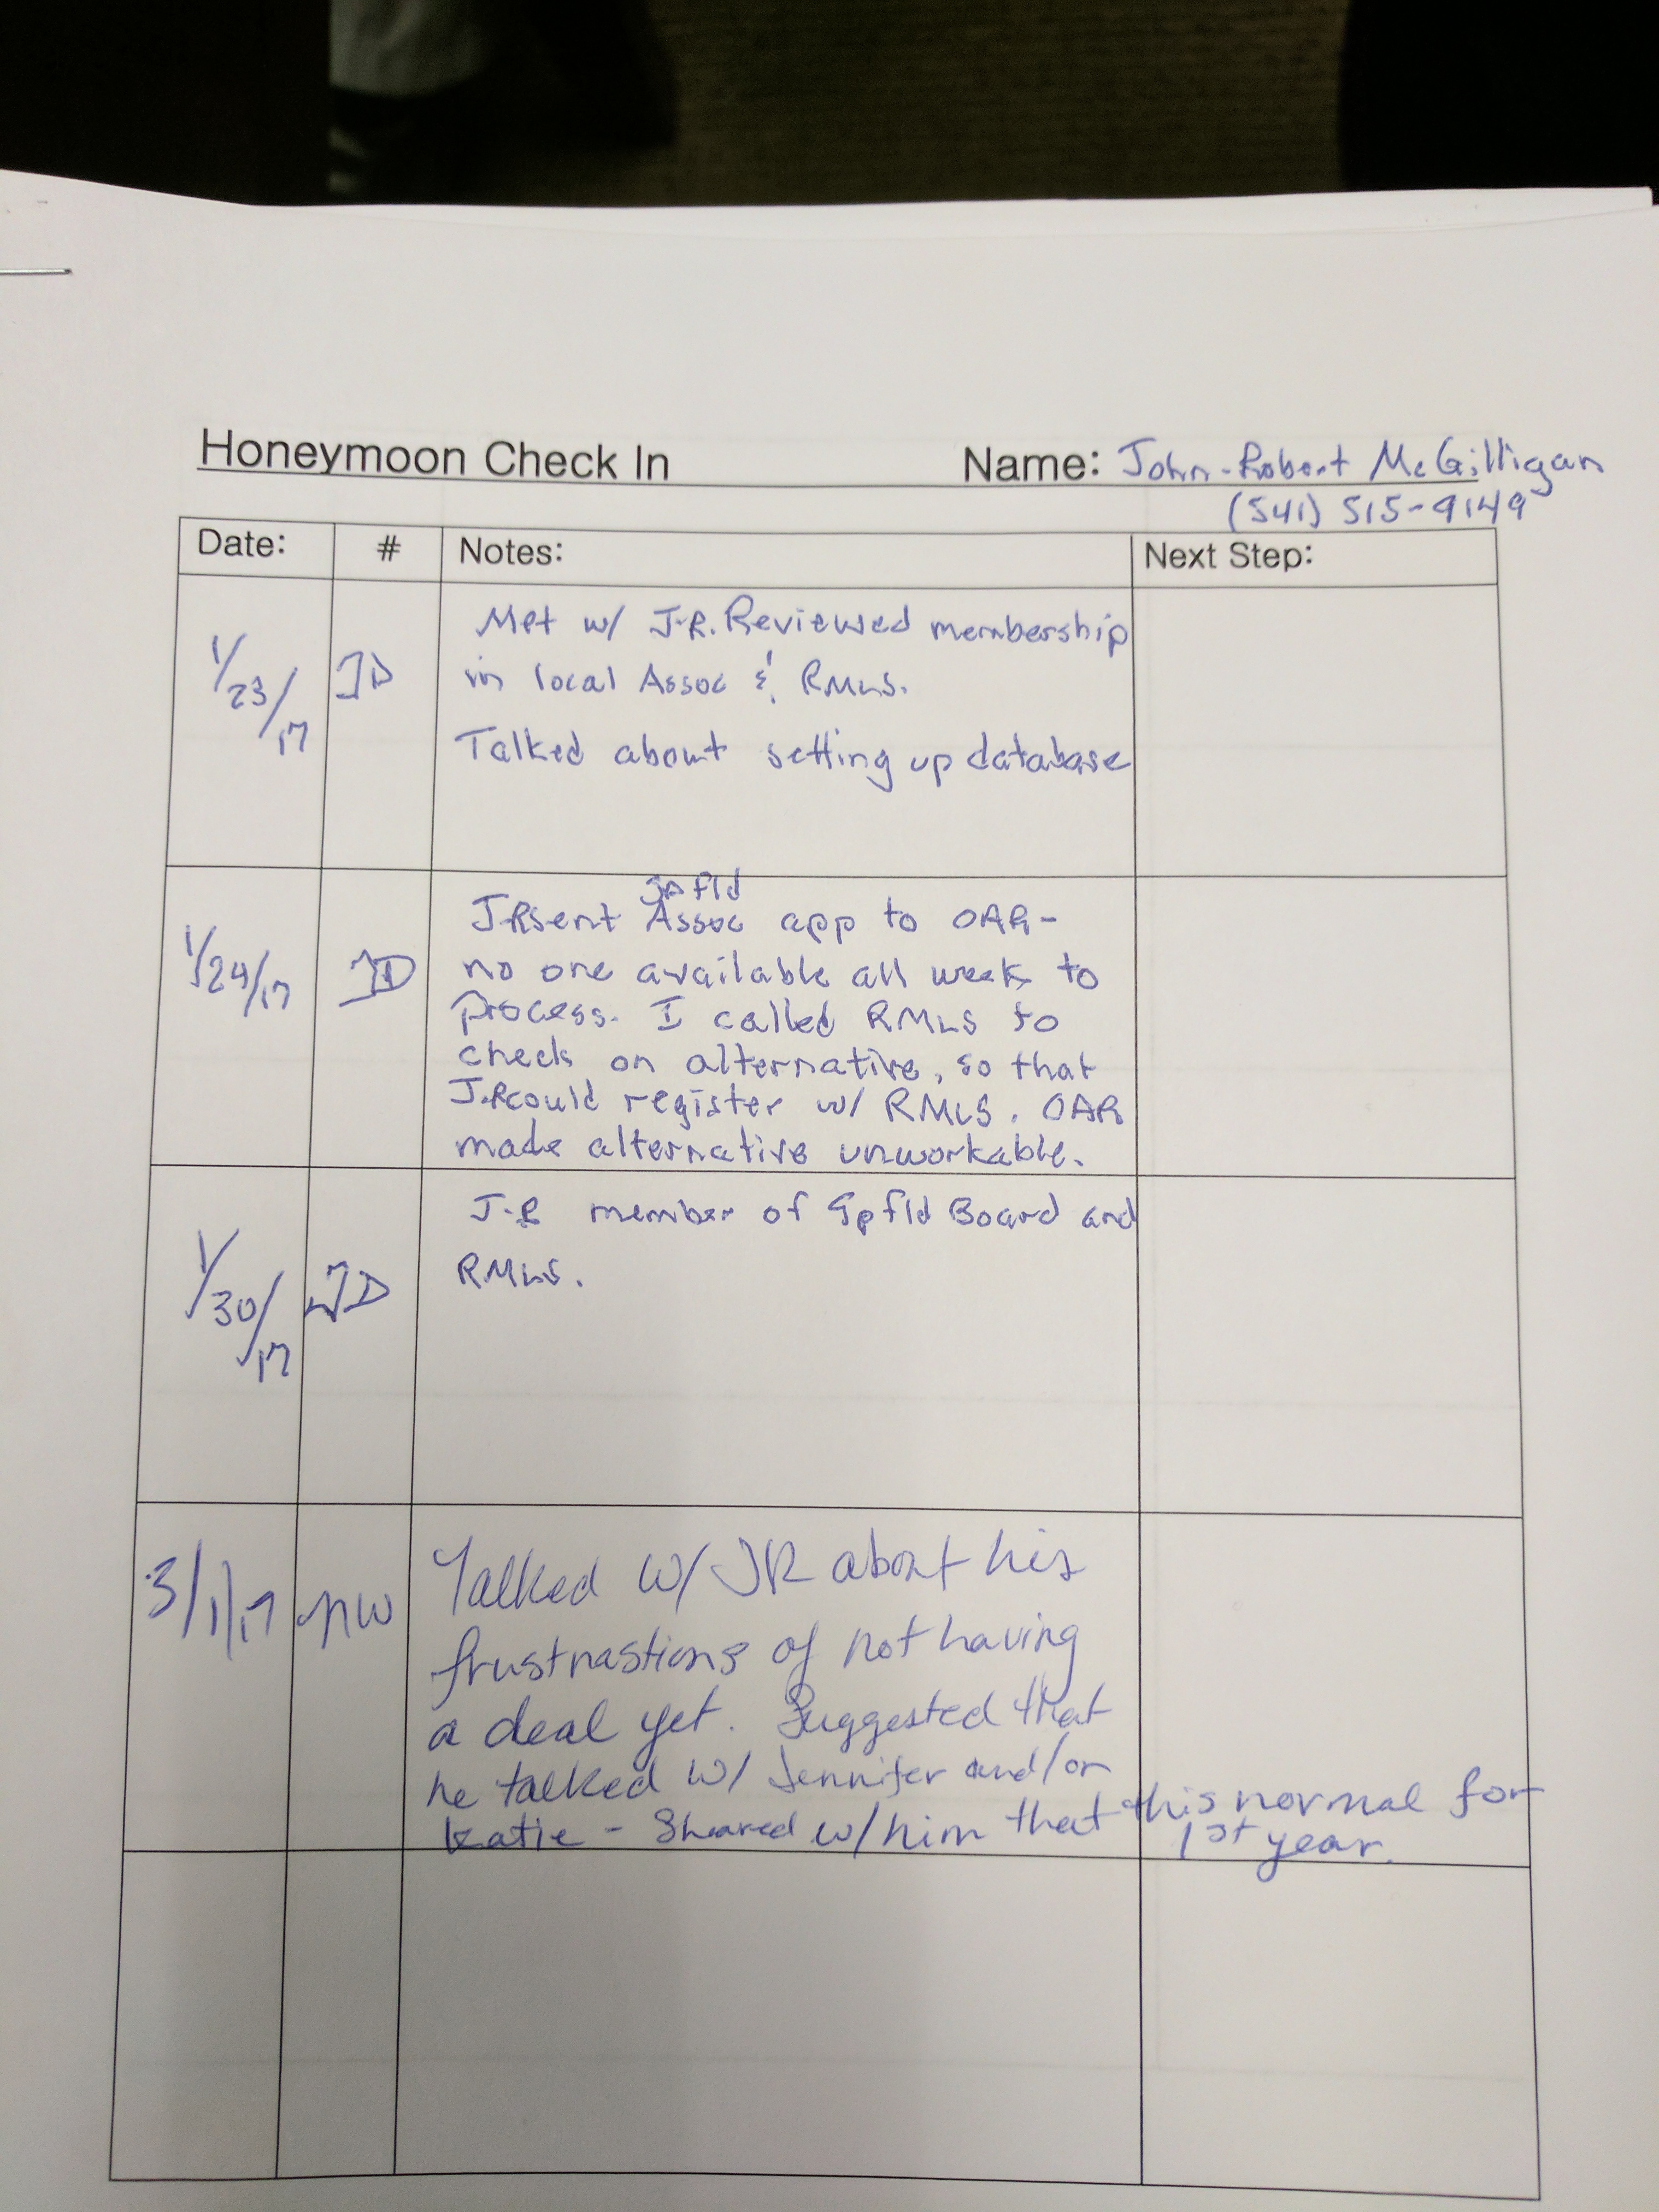 Honeymoon Check In Name: John-Robert McGilligan
(541) 515-9149
Date: # Notes: Next Step:
1/23/17 JD Met w/ J.R. Reviewed membership
in local Assoc & RMLS.
Talked about setting up database
Spfld
1/24/17 JD J.R sent Assoc app to OAR-
no one available all week to
process. I called RMLS to
check on alternative, so that
J.R could register w/ RMLS. OAR
made alternative unworkable.
1/30/17 JD J-R member of Spfld Board and
RMLS.
3/1/17 NW Talked w/ JR about his
frustnastions of not having
a deal yet. Suggested that
he talked w/ Jennifer and/or
Katie - Shared w/ him that this normal for
1st year.